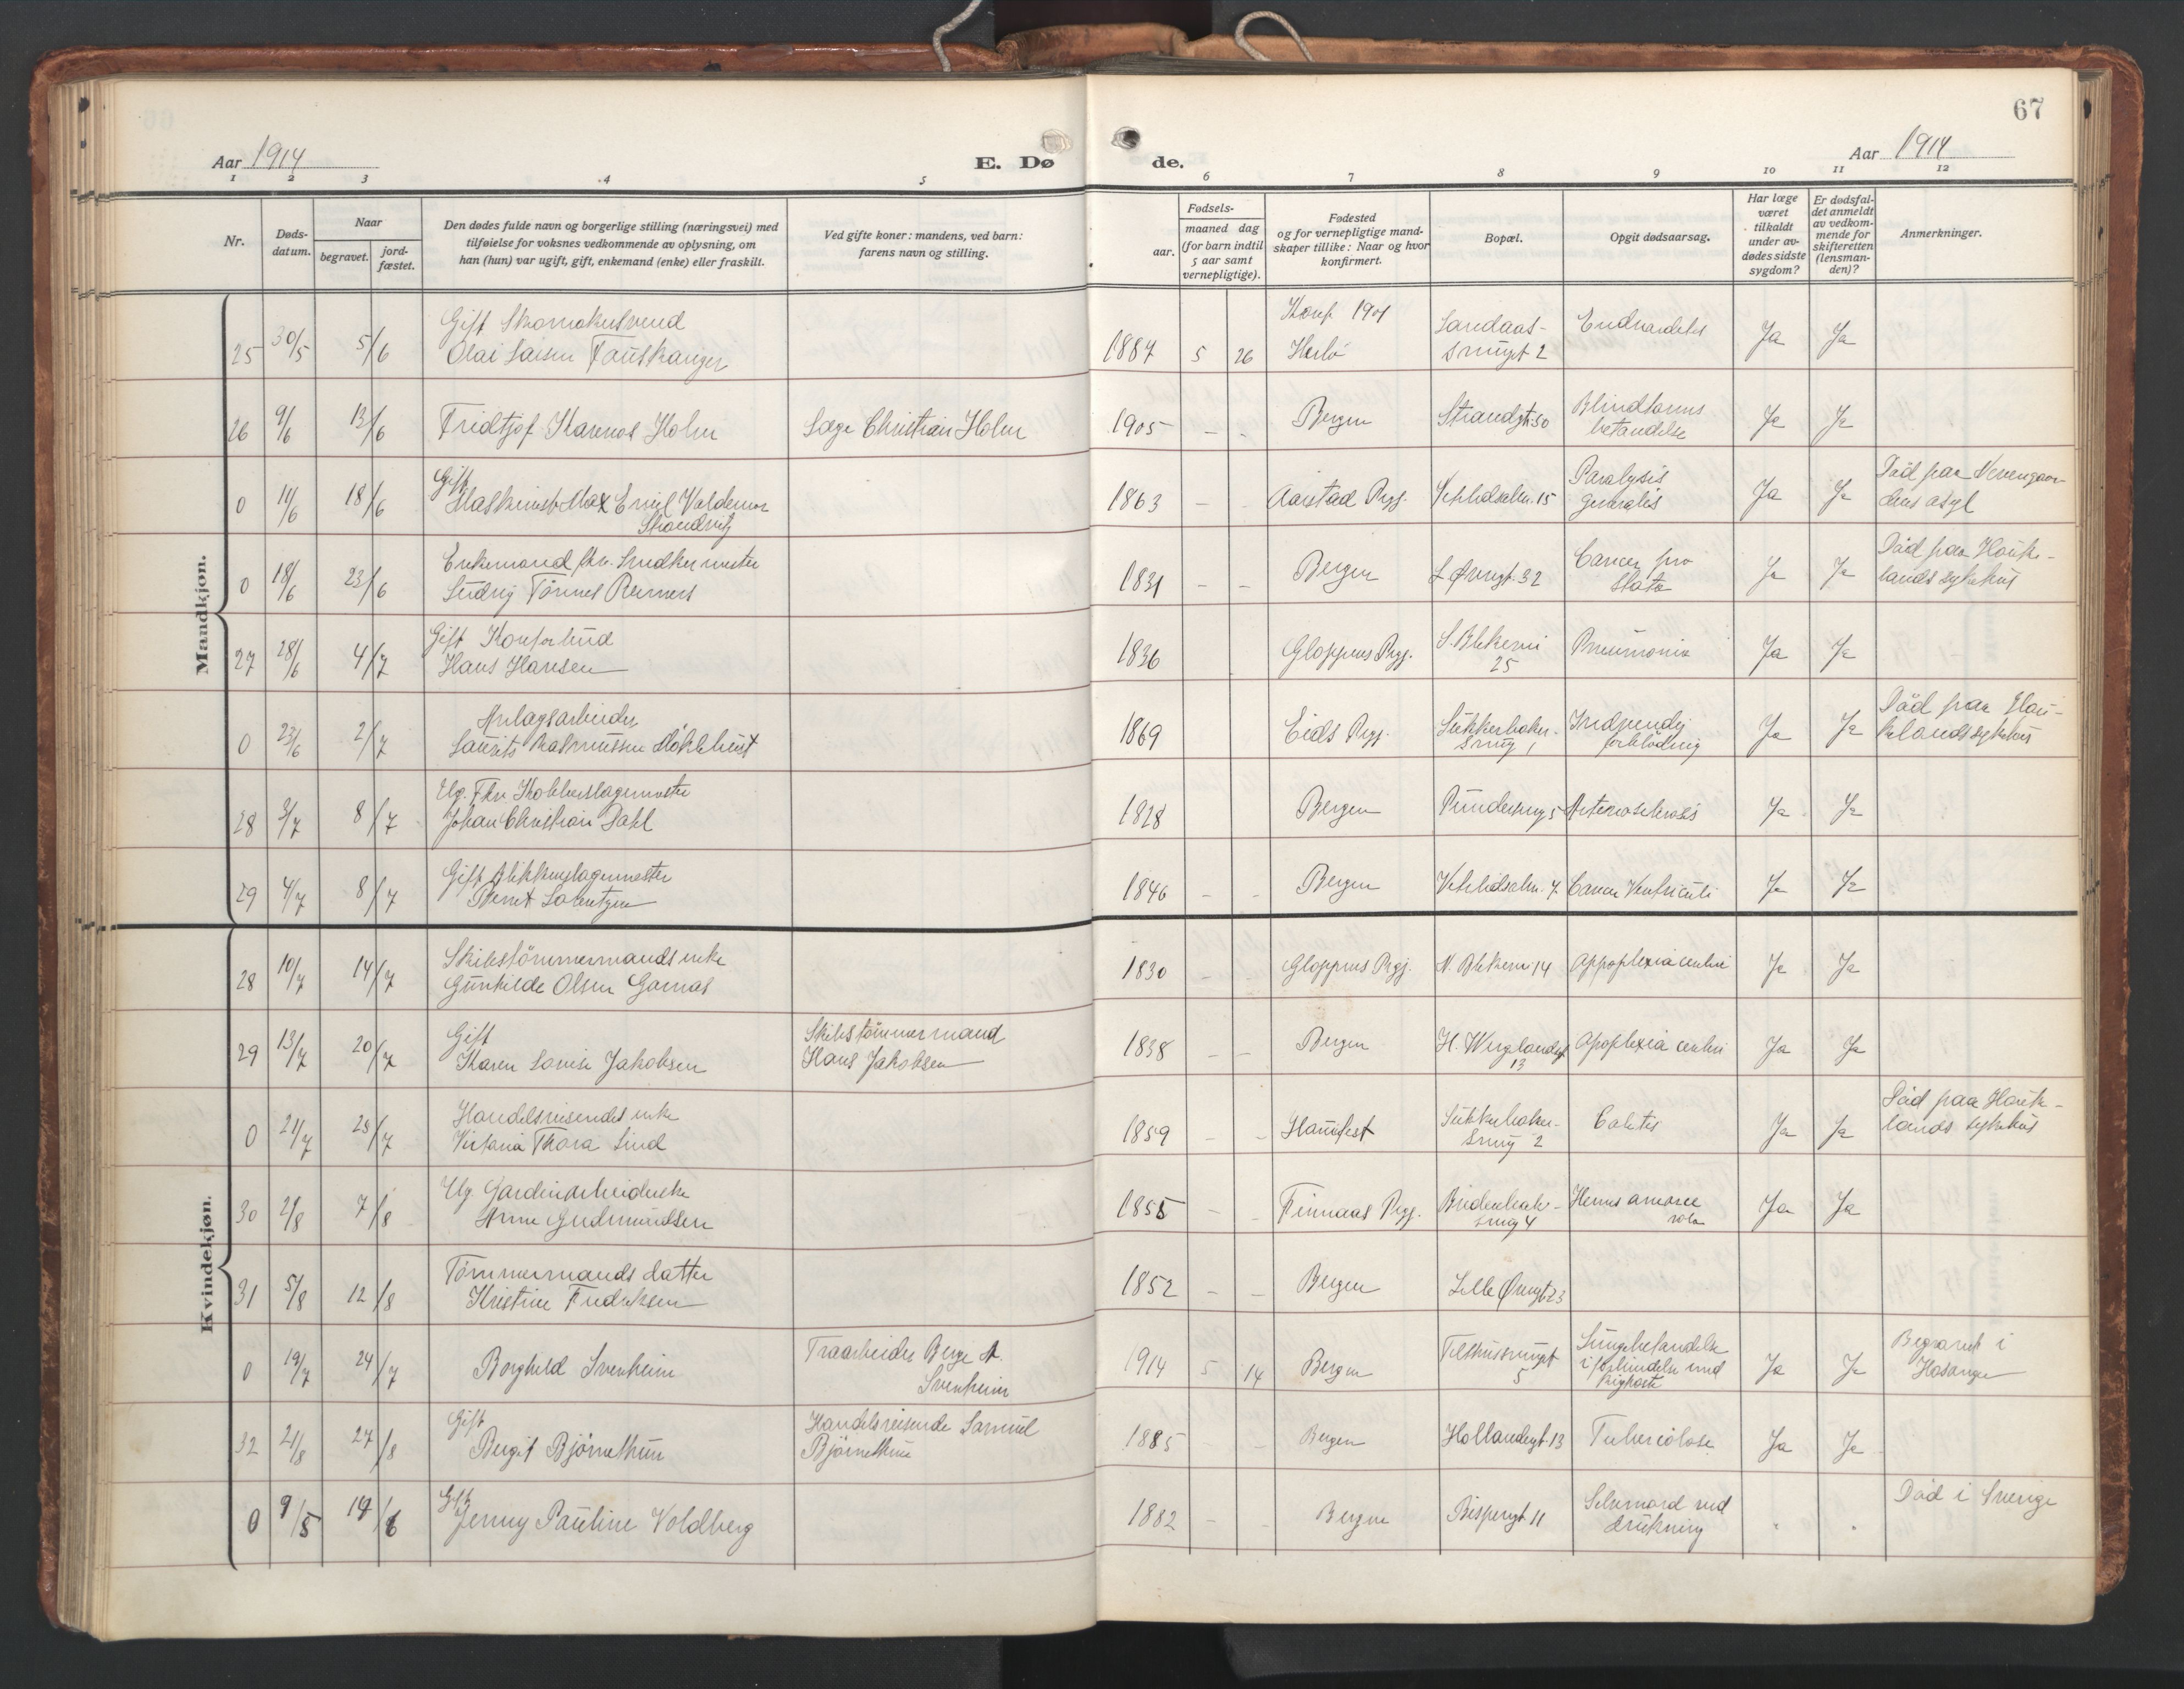 67
Aar 1914
E. Dø
de.
Aar 1914
1 2 3 4 5 6 7 8 9 10 11 12
Nr.
Døds-
datum.
Naar
begravet.
jord-
fæstet.
Den dødes fulde navn og borgerlige stilling (næringsvei) med
tilføielse for voksnes vedkommende av oplysning, om
han (hun) var ugift, gift, enkemand (enke) eller fraskilt.
Ved gifte koner: mandens, ved barn:
farens navn og stilling.
Fødsels-
aar.
maaned dag
(for barn indtil
5 aar samt
vernepligtige).
Fødested
og for vernepligtige mand-
skaper tillike: Naar og hvor
konfirmert.
Bopæl.
Opgit dødsaarsag.
Har læge
været
tilkaldt
under av-
dødes sidste
sygdom?
Er dødsfal-
det anmeldt
av vedkom-
mende for
skifteretten
(lensman-
den)?
Anmerkninger.
Mandkjøn.
25 30/5 5/6
Gift Skomakersvend
Olai Larsen Fauskanger
1884 5 26
Konf 1901
Herlö
Sandaas-
smuget 2
Ja Ja
26 9/6 13/6 Fridtjof Hannes Holm
Læge Christian Holm
1905 - - Bergen Strandgt. 50
Blindtarms
betændelse
Ja Ja
0 11/6 18/6
Gift
Maskinist Max Emil Valdemar
1863 - - Aarstad Prgj. Vetrlidsalm. 15
Paralysis
generalis
Ja Ja
Död paa Neevengaar-
dens asyl
0 18/6 23/6
Enkemand fhv. Snedkermester
Ludvig Tönnes Reimers
1831 - - Bergen L Øvregt. 32
Cancer pro
stata
Ja Ja
Död paa Hauke-
lands sykehus
27 28/6 4/7
Gift Kontorbud
Hans Hansen
1836 Gloppens Prgj.
S. Blekevei
25
Pneumonia Ja Ja
0 23/6 2/7
Anlagsarbeider
Laurits Rasmussen Möklebust
1869 Eids Prgj.
Sukkerhaker-
smug 1
Indvendig
forblödning
Ja Ja
Död paa Hau-
kelands sykehus
28 3/7 8/7
Ug. Fhv. Kobberslagermester
Johan Christian Dahl
1828 Bergen Pundersmug 5 Arteriosclerosis Ja Ja
29 4/7 8/7
Gift Blikkenslagermester
Bernt Lorentzen
1846 - - Bergen Vetrlidsalm. 7 Cancer Ventriculi Ja Ja
Kvindekjøn.
28 10/7 14/7
Skibstömmermands enke
Gunhilde Olsen Garnas
1830 - - Gloppens Prgj. N. Blekevei 14 Appoplexia cerebri Ja Ja
29 13/7 20/7
Gift
Karen Lovise Jakobsen
Skibstömmermand
Hans Jakobsen
1838 - - Bergen
H. Wergelandsgt
13
Apoplexia cerebri Ja Ja
0 21/7 25/7
Handelsreisendes enke
Viktoria Thora Lind
1859 - - Hamfest
Sukkerhaker-
smug 2
Ja Ja
Död paa Hauke-
lands sykehus
30 2/8 7/8
Ug. Gardinarbeiderske
Anne Gudmundsen
1855 - - Finnaas Prgj.
smug 4
Ja Ja
31 5/8 12/8
Tömmermands datter
Kristine Fredriksen
1852 - - Bergen Lille Øvregt 23
0 19/7 24/7 Borghild Svenheim
Traarbeider Berge A.
Svenheim
1914 5 14 Bergen
Tilthussmuget
5
Lungebetændelse
i forbindelse med
kighoste
Ja Ja
Begravet i
Hosanger
32 21/8 27/8
Gift
Bergit Björnethun
Handelsreisende Samuel
Björnethun
1885 - Bergen Hollandergt. 13 Tuberculose Ja Ja
0 9/5 19/6
Gift
Jenny Pauline Voldberg
1882 - - Bergen Bispengt. 11
Selvmord ved
drukning
Död i Sverige